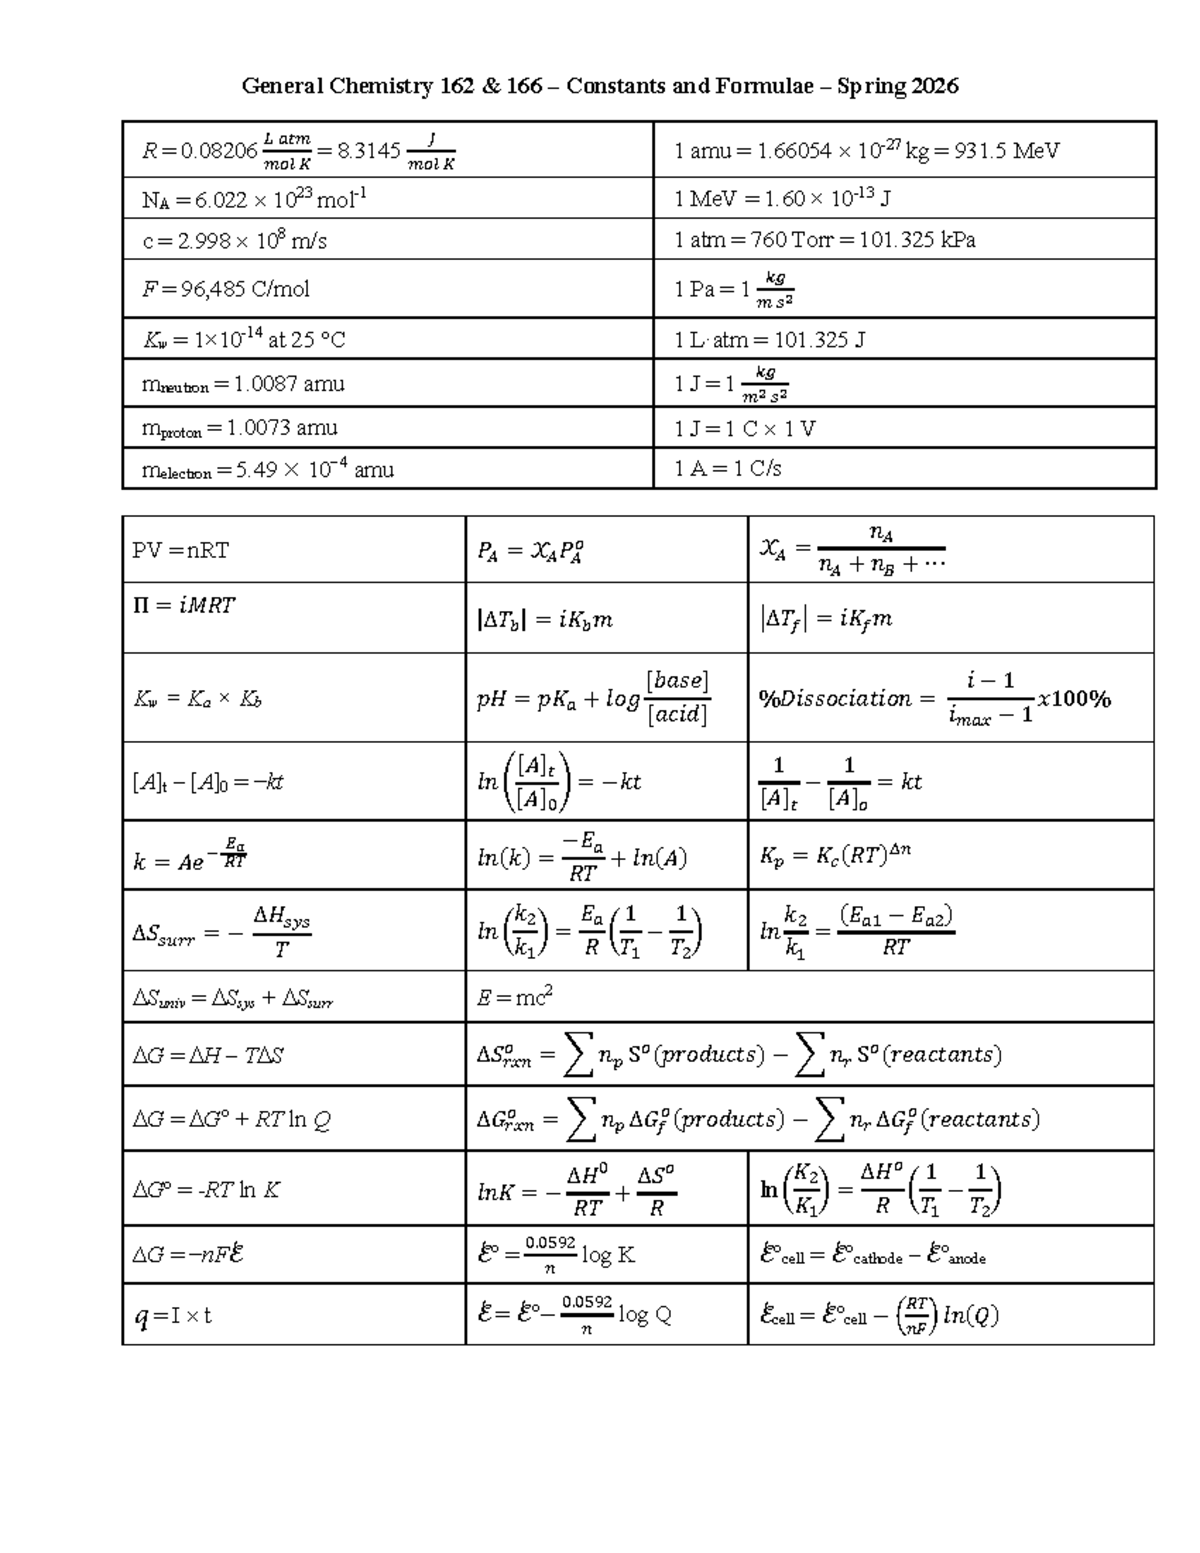 General Chemistry 162 & 166 – Constants and Formulae – Spring 2026
R = 0.08206 \frac{L atm}{mol K} = 8.3145 \frac{J}{mol K}
1 amu = 1.66054 × 10^{-27} kg = 931.5 MeV
N_A = 6.022 × 10^{23} mol^{-1}
1 MeV = 1.60 × 10^{-13} J
c = 2.998 × 10^8 m/s
1 atm = 760 Torr = 101.325 kPa
F = 96,485 C/mol
1 Pa = 1 \frac{kg}{m s^2}
K_w = 1×10^{-14} at 25 °C
1 L·atm = 101.325 J
m_{neutron} = 1.0087 amu
1 J = 1 \frac{kg}{m^2 s^2}
m_{proton} = 1.0073 amu
1 J = 1 C × 1 V
m_{election} = 5.49 × 10^{−4} amu
1 A = 1 C/s
PV = nRT
P_A = X_A P_A^o
X_A = \frac{n_A}{n_A + n_B + ⋯}
Π = iMRT
|ΔT_b| = iK_b m
|ΔT_f| = iK_f m
K_w = K_a × K_b
pH = pK_a + log \frac{[base]}{[acid]}
%Dissociation = \frac{i − 1}{i_{max} − 1} x100%
[A]_t – [A]_0 = –kt
ln(\frac{[A]_t}{[A]_0}) = −kt
\frac{1}{[A]_t} − \frac{1}{[A]_o} = kt
k = Ae^{−\frac{E_a}{RT}}
ln(k) = \frac{−E_a}{RT} + ln(A)
K_p = K_c(RT)^{Δn}
ΔS_{surr} = − \frac{ΔH_{sys}}{T}
ln(\frac{k_2}{k_1}) = \frac{E_a}{R}(\frac{1}{T_1} − \frac{1}{T_2})
ln\frac{k_2}{k_1} = \frac{(E_{a1} − E_{a2})}{RT}
ΔS_{univ} = ΔS_{sys} + ΔS_{surr}
E = mc^2
ΔG = ΔH – TΔS
ΔS_{rxn}^o = ∑ n_p S^o(products) − ∑ n_r S^o(reactants)
ΔG = ΔG° + RT ln Q
ΔG_{rxn}^o = ∑ n_p ΔG_f^o(products) − ∑ n_r ΔG_f^o(reactants)
ΔG° = -RT ln K
lnK = − \frac{ΔH^0}{RT} + \frac{ΔS^o}{R}
ln(\frac{K_2}{K_1}) = \frac{ΔH^o}{R}(\frac{1}{T_1} − \frac{1}{T_2})
ΔG = –nFℰ
ℰ° = \frac{0.0592}{n} log K
ℰ°_{cell} = ℰ°_{cathode} – ℰ°_{anode}
q = I × t
ℰ = ℰ° – \frac{0.0592}{n} log Q
ℰ_{cell} = ℰ°_{cell} − (\frac{RT}{nF}) ln(Q)